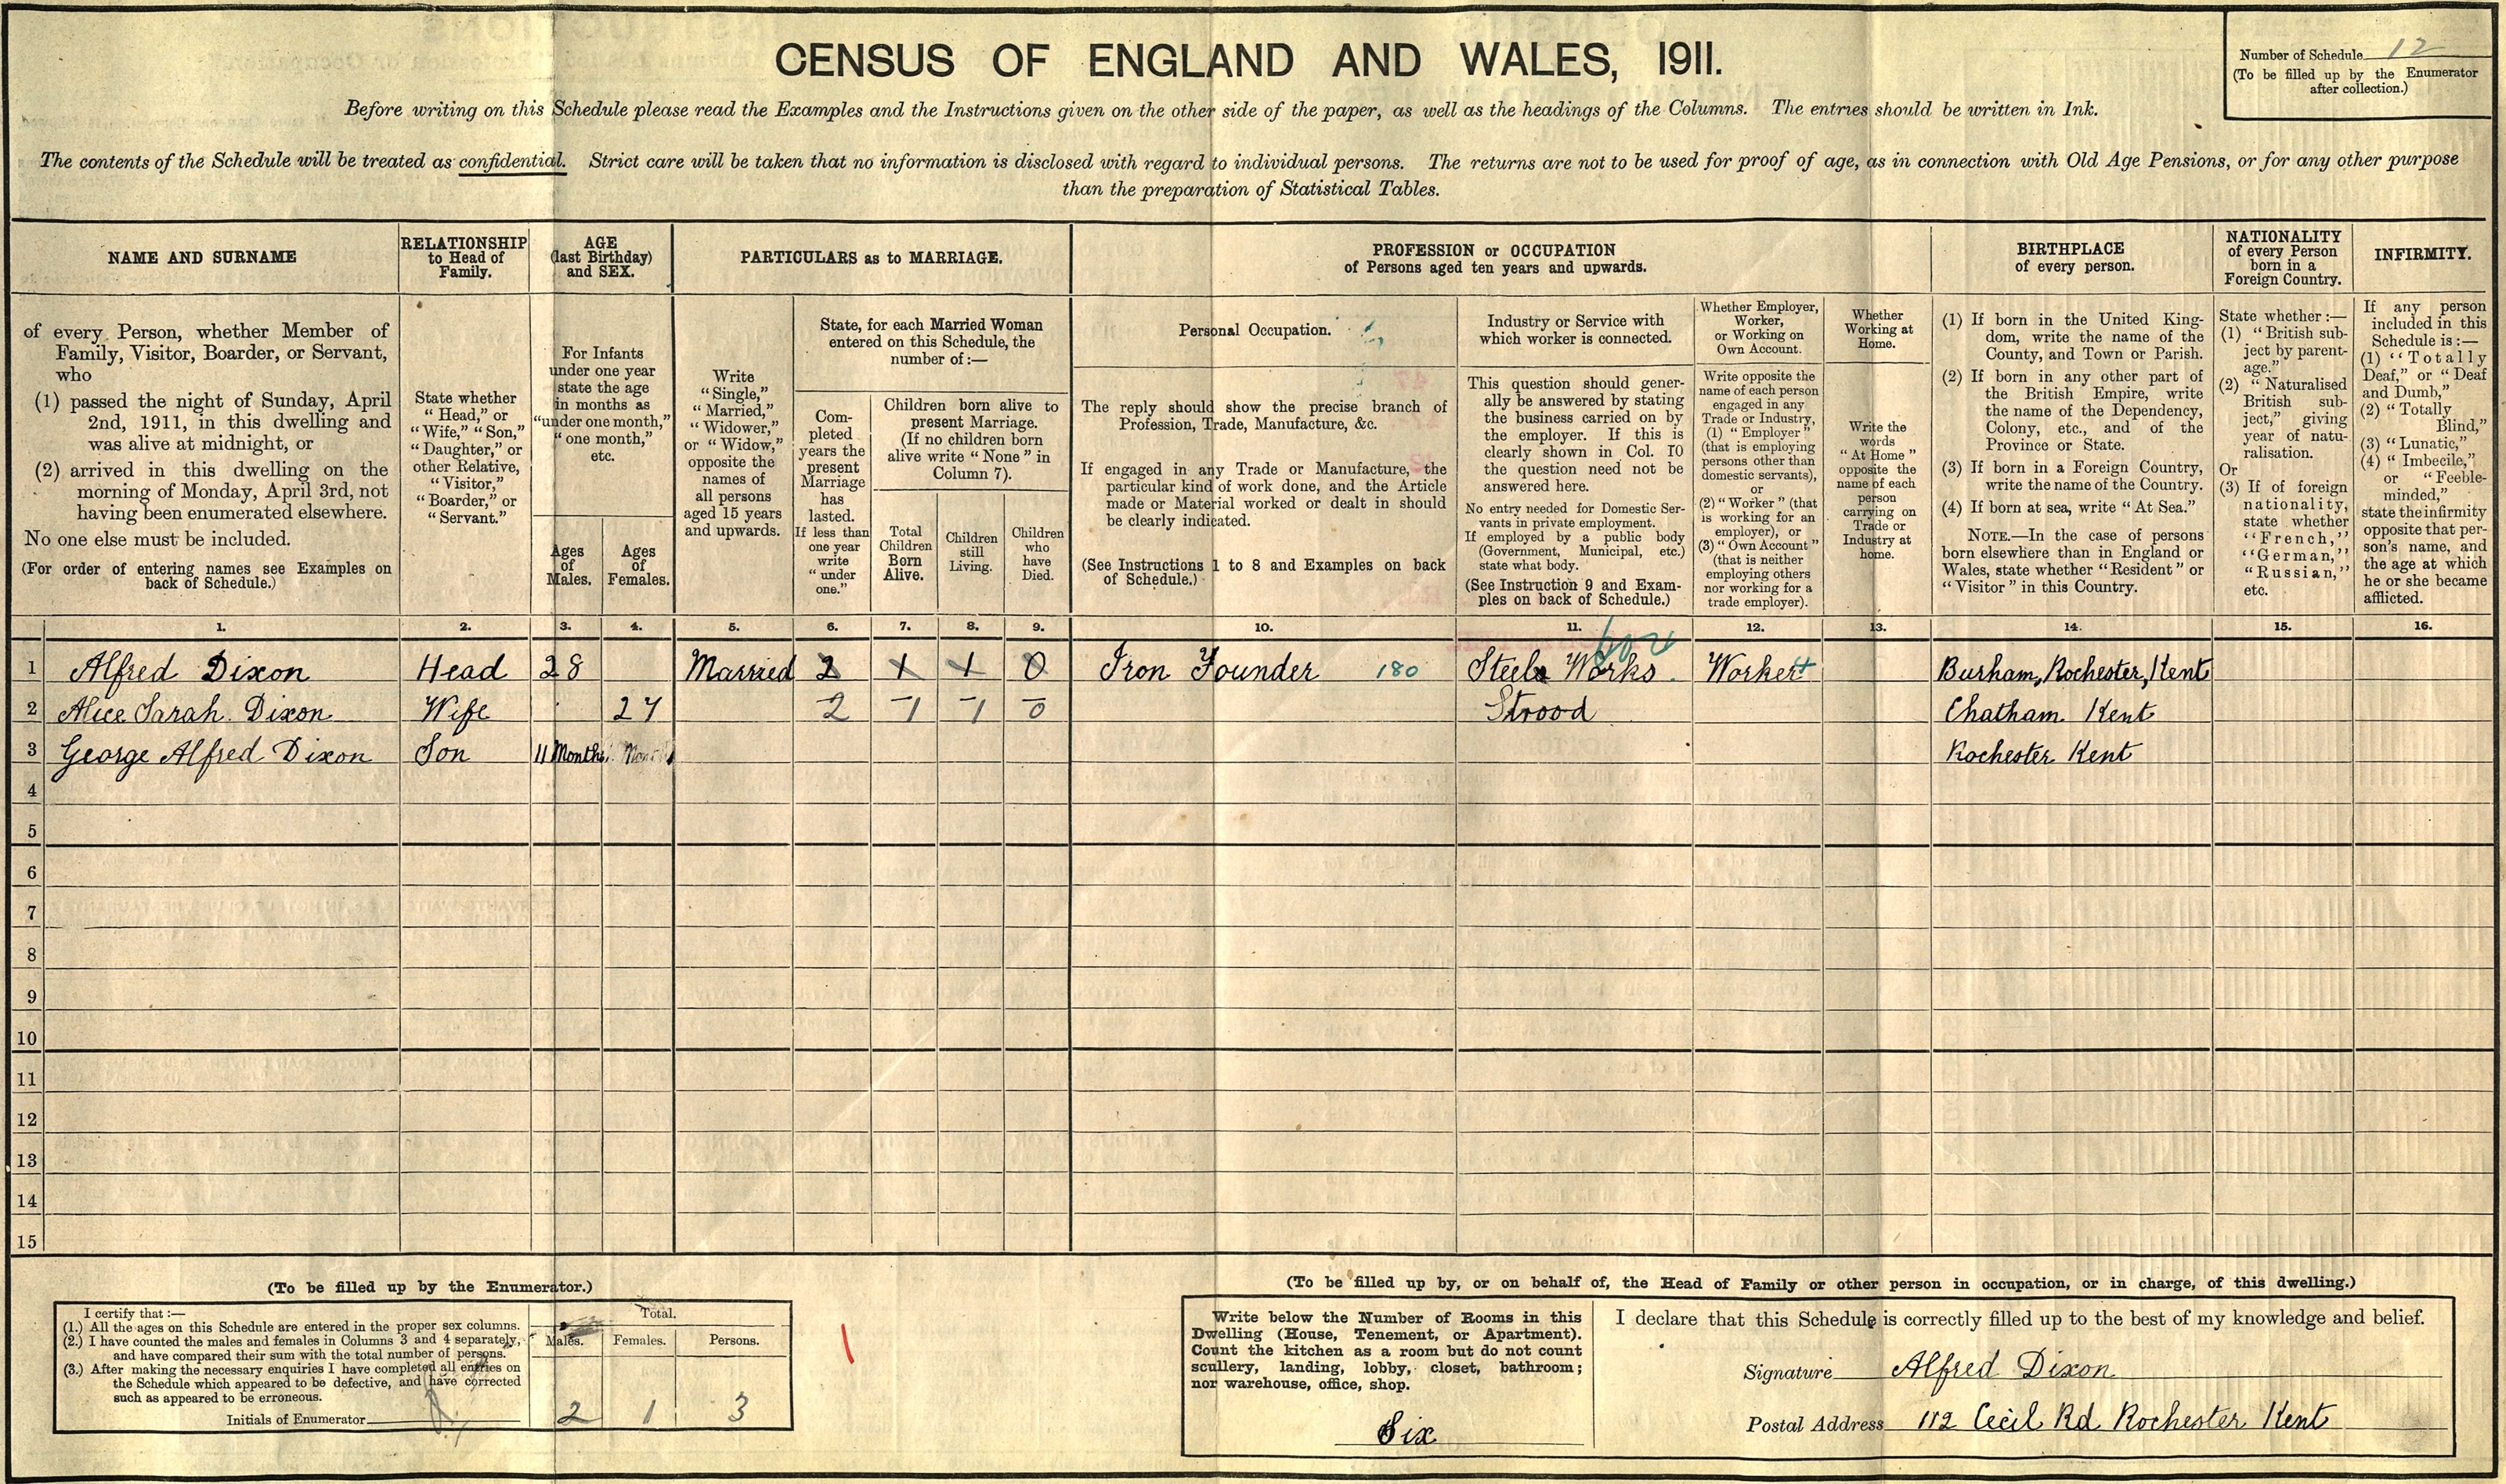 CENSUS OF ENGLAND AND WALES, 1911.
Number of Schedule 12
(To be filled up by the Enumerator
after collection.)
Before writing on this Schedule please read the Examples and the Instructions given on the other side of the paper, as well as the headings of the Columns. The entries should be written in Ink.
The contents of the Schedule will be treated as confidential. Strict care will be taken that no information is disclosed with regard to individual persons. The returns are not to be used for proof of age, as in connection with Old Age Pensions, or for any other purpose
than the preparation of Statistical Tables.
NAME AND SURNAME
of every Person, whether Member of
Family, Visitor, Boarder, or Servant,
who
(1) passed the night of Sunday, April
2nd, 1911, in this dwelling and
was alive at midnight, or
(2) arrived in this dwelling on the
morning of Monday, April 3rd, not
having been enumerated elsewhere.
No one else must be included.
(For order of entering names see Examples on
back of Schedule.)
RELATIONSHIP
to Head of
Family.
State whether
"Head," or
"Wife," "Son,"
"Daughter," or
other Relative,
"Visitor,"
"Boarder," or
"Servant."
AGE
(last Birthday)
and SEX.
For Infants
under one year
state the age
in months as
"under one month,"
"one month,"
etc.
Ages
of
Males.
Ages
of
Females.
PARTICULARS as to MARRIAGE.
Write
"Single,"
"Married,"
"Widower,"
or "Widow,"
opposite the
names of
all persons
aged 15 years
and upwards.
State, for each Married Woman
entered on this Schedule, the
number of:—
Com-
pleted
years the
present
Marriage
has
lasted.
If less than
one year
write
"under
one."
Children born alive to
present Marriage.
(If no children born
alive write "None" in
Column 7).
Total
Children
Born
Alive.
Children
still
Living.
Children
who
have
Died.
PROFESSION or OCCUPATION
of Persons aged ten years and upwards.
Personal Occupation.
The reply should show the precise branch of
Profession, Trade, Manufacture, &c.
If engaged in any Trade or Manufacture, the
particular kind of work done, and the Article
made or Material worked or dealt in should
be clearly indicated.
(See Instructions 1 to 8 and Examples on back
of Schedule.)
Industry or Service with
which worker is connected.
This question should gener-
ally be answered by stating
the business carried on by
the employer. If this is
clearly shown in Col. 10
the question need not be
answered here.
No entry needed for Domestic Ser-
vants in private employment.
If employed by a public body
(Government, Municipal, etc.)
state what body.
(See Instruction 9 and Exam-
ples on back of Schedule.)
Whether Employer,
Worker,
or Working on
Own Account.
Write opposite the
name of each person
engaged in any
Trade or Industry,
(1) "Employer"
(that is employing
persons other than
domestic servants),
or
(2) "Worker" (that
is working for an
employer), or
(3) "Own Account"
(that is neither
employing others
nor working for a
trade employer).
Whether
Working at
Home.
Write the
words
"At Home"
opposite the
name of each
person
carrying on
Trade or
Industry at
home.
BIRTHPLACE
of every person.
(1) If born in the United King-
dom, write the name of the
County, and Town or Parish.
(2) If born in any other part of
the British Empire, write
the name of the Dependency,
Colony, etc., and of the
Province or State.
(3) If born in a Foreign Country,
write the name of the Country.
(4) If born at sea, write "At Sea."
NOTE.—In the case of persons
born elsewhere than in England or
Wales, state whether "Resident" or
"Visitor" in this Country.
NATIONALITY
of every Person
born in a
Foreign Country.
State whether:—
(1) "British sub-
ject by parent-
age."
(2) "Naturalised
British sub-
ject," giving
year of natu-
ralisation.
Or
(3) If of foreign
nationality,
state whether
"French,"
"German,"
"Russian,"
etc.
INFIRMITY.
If any person
included in this
Schedule is:—
(1) "Totally
Deaf," or "Deaf
and Dumb,"
(2) "Totally
Blind,"
(3) "Lunatic,"
(4) "Imbecile,"
or "Feeble-
minded,"
state the infirmity
opposite that per-
son's name, and
the age at which
he or she became
afflicted.
1. 2. 3. 4. 5. 6. 7. 8. 9. 10. 11. 12. 13. 14. 15. 16.
1 Alfred Dixon Head 28 Married 2 1 1 0 Iron Founder 180 Steel Works Worker Burham, Rochester, Kent
2 Alice Sarah Dixon Wife 27 2 1 1 0 Strood Chatham Kent
3 George Alfred Dixon Son 11 Months Rochester Kent
4
5
6
7
8
9
10
11
12
13
14
15
(To be filled up by the Enumerator.)
I certify that:—
(1.) All the ages on this Schedule are entered in the proper sex columns.
(2.) I have counted the males and females in Columns 3 and 4 separately,
and have compared their sum with the total number of persons.
(3.) After making the necessary enquiries I have completed all entries on
the Schedule which appeared to be defective, and have corrected
such as appeared to be erroneous.
Initials of Enumerator
Total.
Males. Females. Persons.
2 1 3
(To be filled up by, or on behalf of, the Head of Family or other person in occupation, or in charge, of this dwelling.)
Write below the Number of Rooms in this
Dwelling (House, Tenement, or Apartment).
Count the kitchen as a room but do not count
scullery, landing, lobby, closet, bathroom;
nor warehouse, office, shop.
Six
I declare that this Schedule is correctly filled up to the best of my knowledge and belief.
Signature Alfred Dixon
Postal Address 112 Cecil Rd Rochester Kent